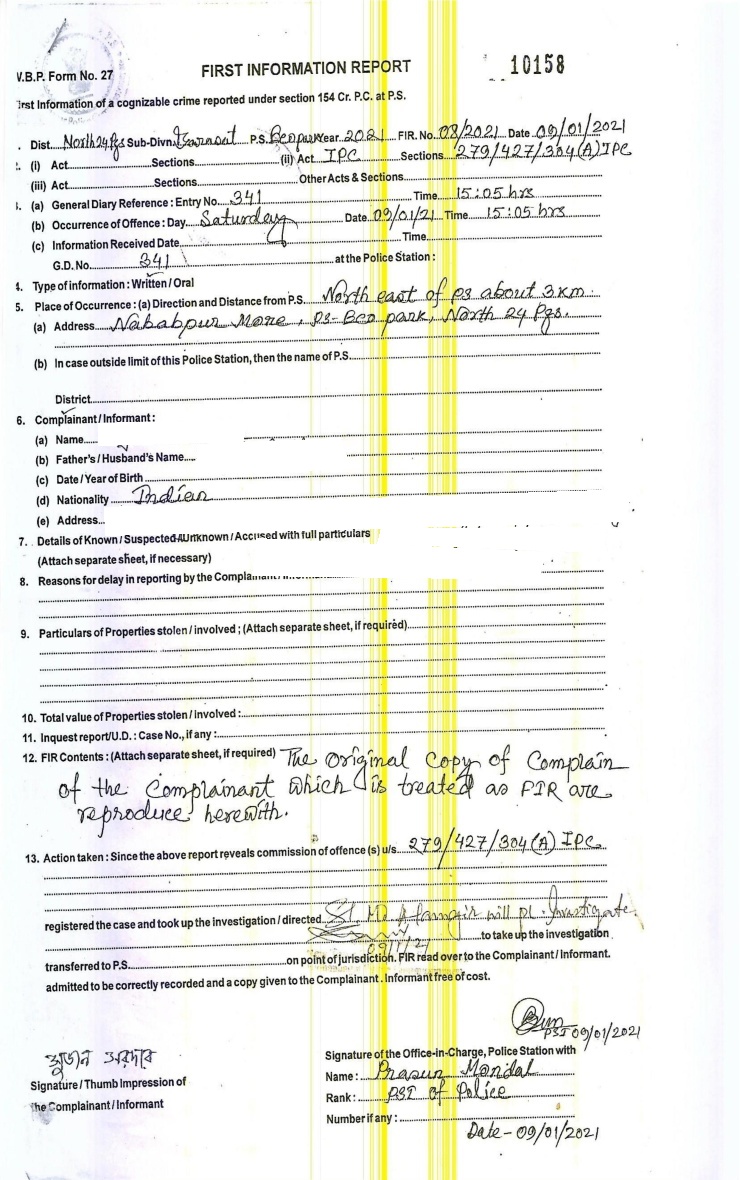 V.B.P. Form No. 27
FIRST INFORMATION REPORT
10158
First Information of a cognizable crime reported under section 154 Cr. P.C. at P.S.
Dist. North 24 Pgs Sub-Divn. Barasat P.S. Eco park Year. 2021 FIR. No. 08/2021 Date 09/01/2021
(i) Act Sections (ii) Act IPC Sections 279/427/304(A) IPC
(iii) Act Sections Other Acts & Sections
(a) General Diary Reference : Entry No. 341 Time 15:05 hrs
(b) Occurrence of Offence : Day Saturday Date 09/01/21 Time 15:05 hrs
(c) Information Received Date Time
G.D. No. 341 at the Police Station :
4. Type of information : Written / Oral
5. Place of Occurrence : (a) Direction and Distance from P.S. North east of PS about 3 km.
(a) Address Nababpur More, PS- Eco park, North 24 Pgs.
(b) In case outside limit of this Police Station, then the name of P.S.
District
6. Complainant / Informant :
(a) Name
(b) Father's / Husband's Name
(c) Date / Year of Birth
(d) Nationality Indian
(e) Address
7. Details of Known / Suspected / Unknown / Accused with full particulars
(Attach separate sheet, if necessary)
8. Reasons for delay in reporting by the
9. Particulars of Properties stolen / involved ; (Attach separate sheet, if required)
10. Total value of Properties stolen / involved :
11. Inquest report / U.D. : Case No., if any :
12. FIR Contents : (Attach separate sheet, if required) The original copy of Complain
of the Complainant which is treated as FIR are
reproduce herewith.
13. Action taken : Since the above report reveals commission of offence (s) u/s. 279/427/304(A) IPC
registered the case and took up the investigation / directed will pl. Investigate.
to take up the investigation
09/1/21
transferred to P.S. on point of jurisdiction. FIR read over to the Complainant / Informant.
admitted to be correctly recorded and a copy given to the Complainant. Informant free of cost.
PSI 09/01/2021
Signature of the Office-in-Charge, Police Station with
Name : Prasun Mondal
Rank : PSI of Police
Number if any :
Date - 09/01/2021
সুজন সরদার
Signature / Thumb Impression of
the Complainant / Informant